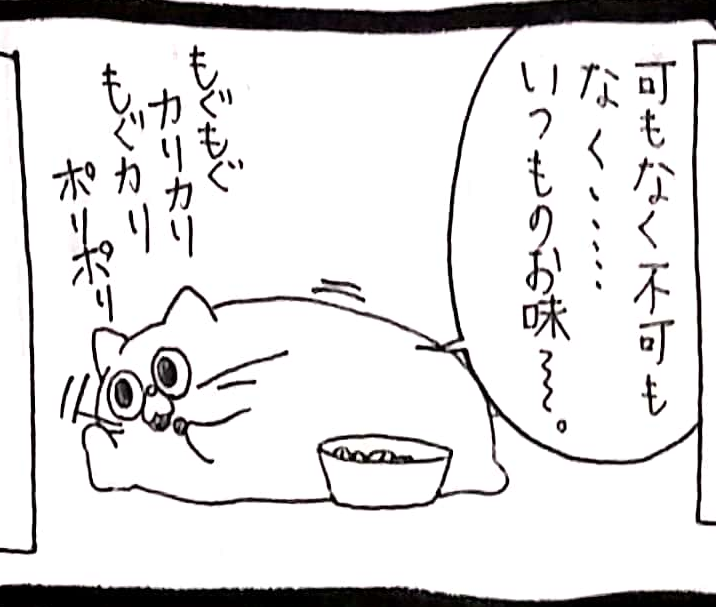 可もなく不可も
なく、……
いつものお味〜〜。
もぐもぐ
カリカリ
もぐカリ
ポリポリ